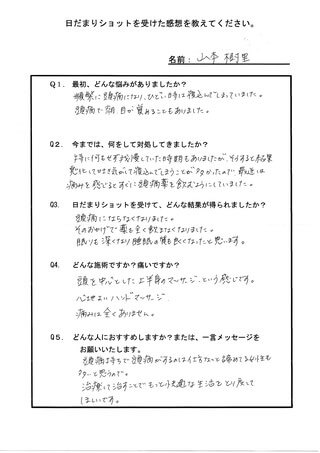 日だまりショットを受けた感想を教えてください。
名前: 山本 樹里
Q1. 最初、どんな悩みがありましたか？
頻繁に頭痛になり、ひどい時は寝込んでしまっていました。
頭痛で朝 目が覚めることもありました。
Q2. 今までは、何をして対処してきましたか？
特に何もせず我慢していた時期もありましたが、そうすると結果
悪化して吐き気がして寝込んでしまうことが多かったので、最近は
痛みを感じるとすぐに頭痛薬を飲むようにしていました。
Q3. 日だまりショットを受けて、どんな結果が得られましたか？
頭痛にならなくなりました。
そのおかげで薬も全く飲まなくなりました。
眠りも深くなり睡眠の質も良くなったと思います。
Q4. どんな施術ですか？痛いですか？
頭を中心とした上半身のマッサージ、という感じです。
心地よいハンドマッサージ、
痛みは全くありません。
Q5. どんな人におすすめしますか？または、一言メッセージを
お願いいたします。
頭痛持ちで頭痛がするのは仕方ないと諦めてる女性も
多いと思うので、
治療して治すことでもっと快適な生活をとり戻して
ほしいです。